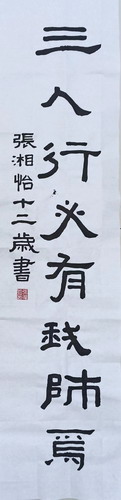 三人行必有我師焉
張湘怡十二歲書